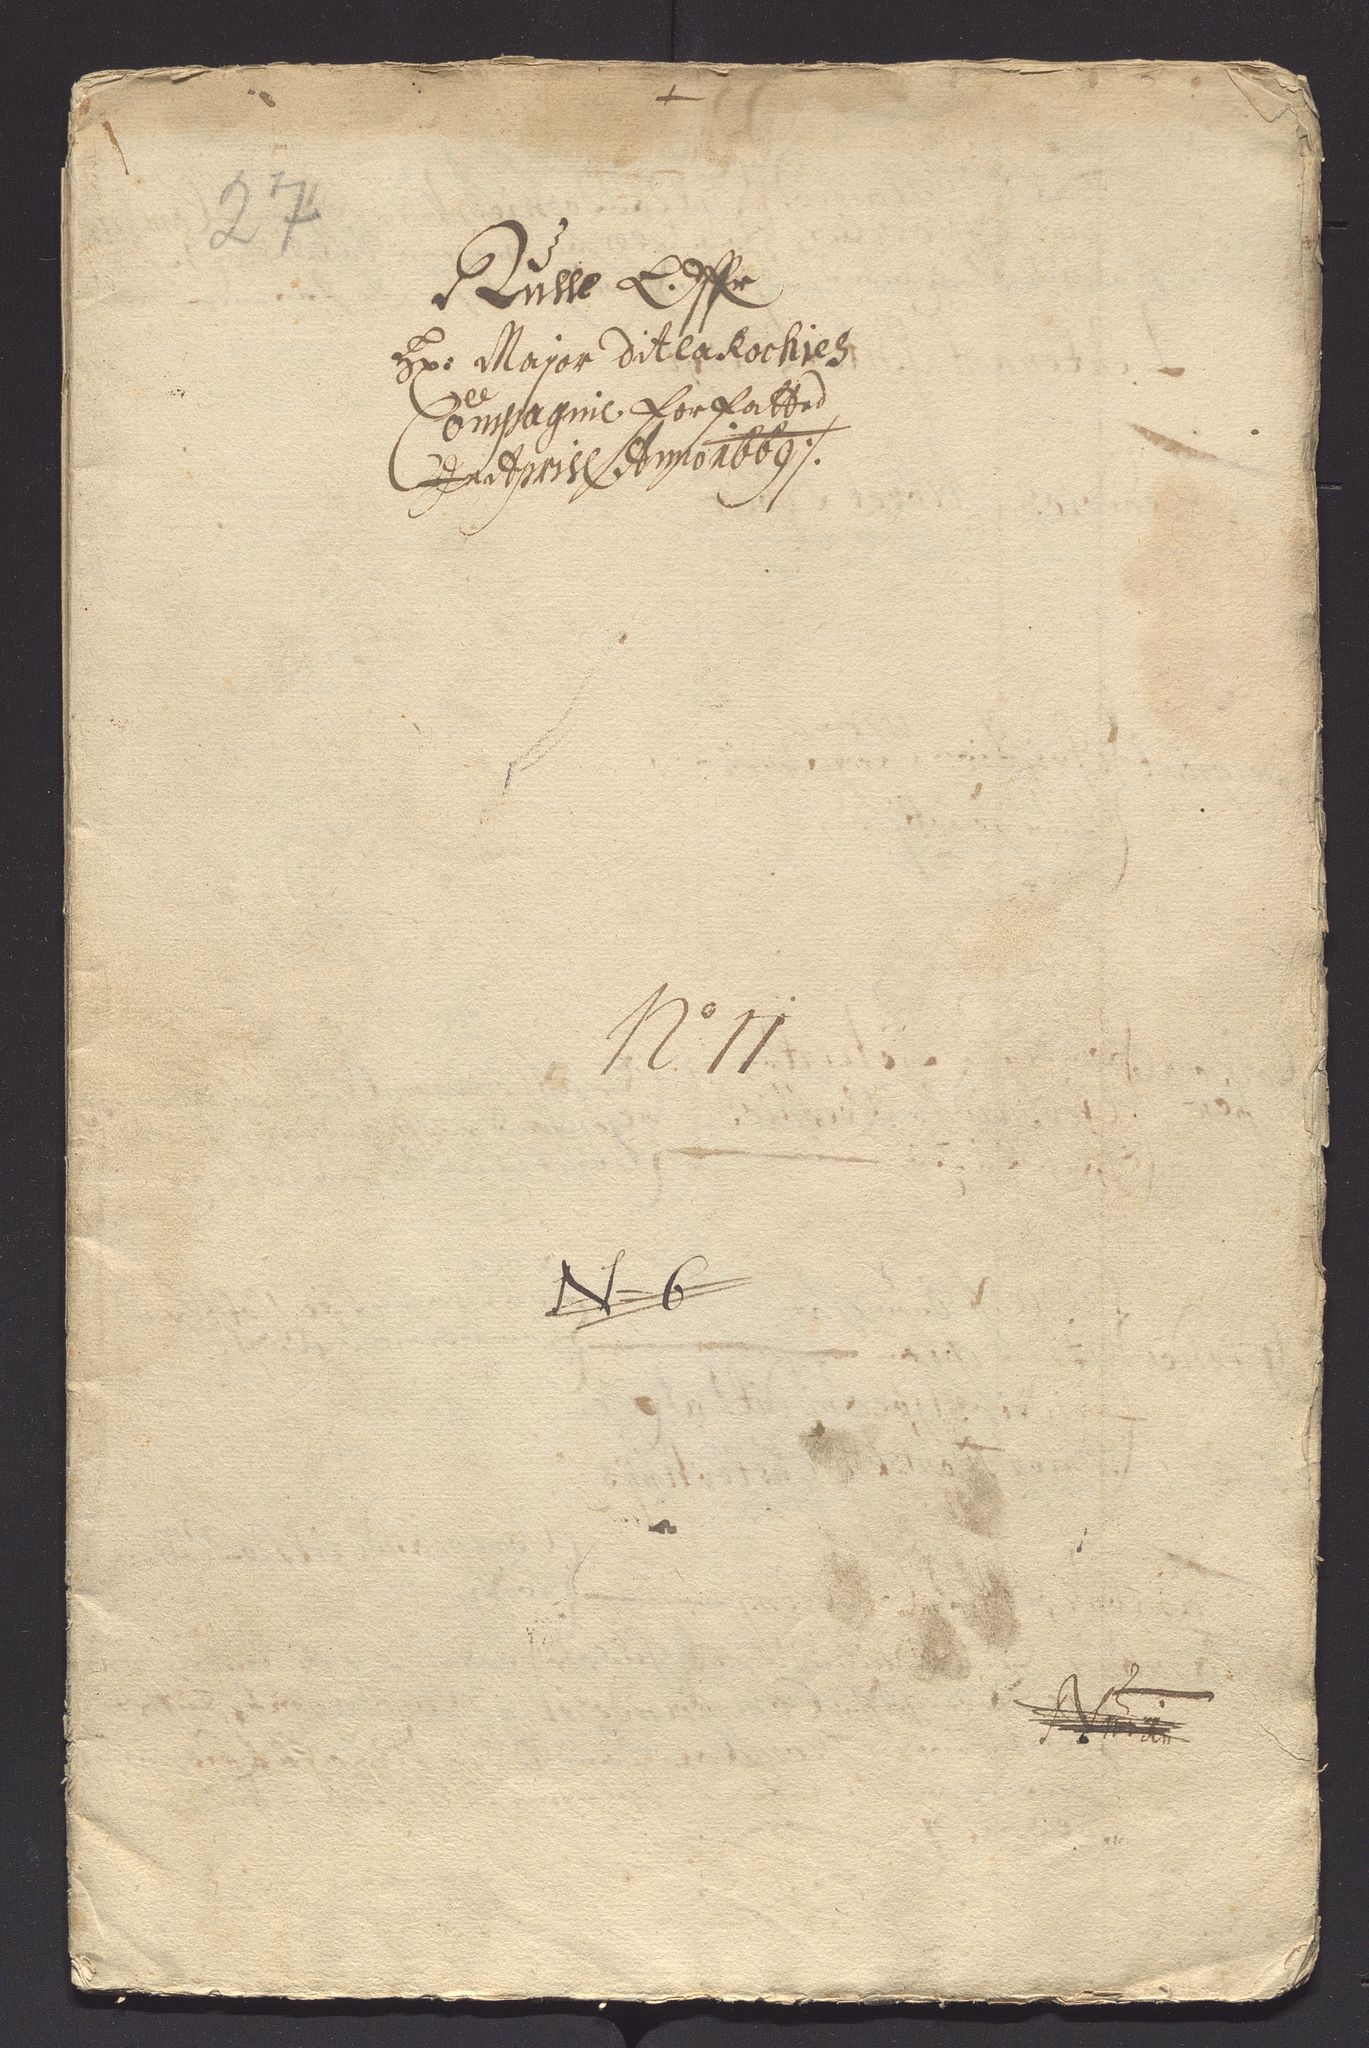 27
Rulle Offr
Hr: Major Ditlakochies
Compagnie forfatted
Aprill Anno 1669 /.
No 11
N 6